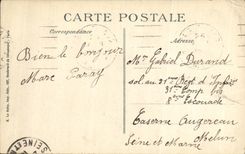 CARTE POSTALE
Correspondance
Adresse
Bien le bonjour
Marc Paray
Mr Gabriel Durand
sol. au 31ème Regt d'Infrie
31ème Comp bis
8ème Escouade
Caserne Augereau
Melun
Seine et Marne